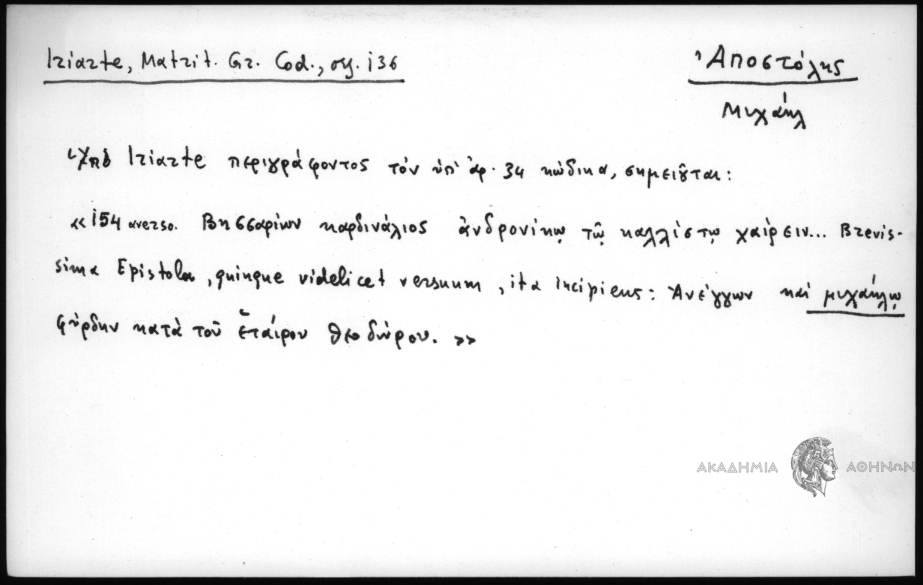 Iriarte, Matrit. Gr. Cod., σχ. 136
Ἀποστόλης
Μιχαήλ
Ὑπὸ Iriarte περιγράφοντος τὸν ὑπ' ἀρ. 34 κώδικα, σημειοῦται:
«154 averso. Βησσαρίων καρδινάλιος ἀνδρονίκῳ τῷ καλλίστῳ χαίρειν... Brevis-
sima Epistola, quinque videlicet versuum, ita incipiens: Ἀνέγγων καὶ μιχαήλῳ
φύρδην κατὰ τοῦ ἑταίρου θεοδώρου.»
ΑΚΑΔΗΜΙΑ ΑΘΗΝΩΝ